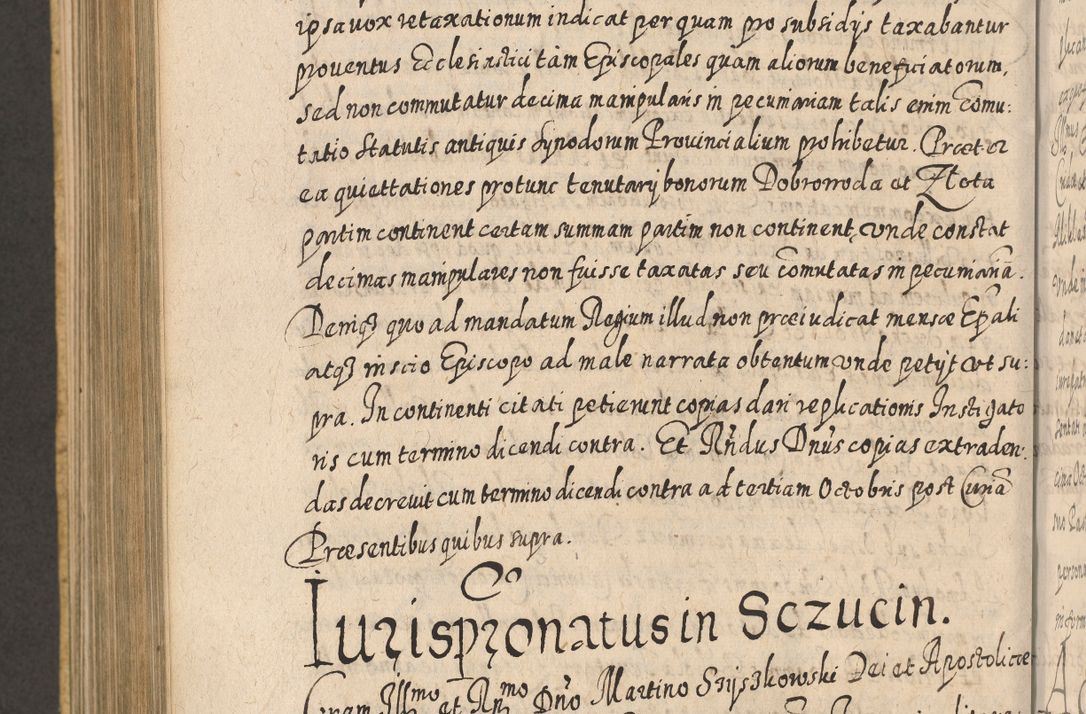 ipsa vox retaxationum indicat per quam pro subsidijs taxabantur
proventus Ecclesiastici tàm Episcopales quàm aliorum beneficiatorum,
sed non commutatur decima manipularis in pecuniariam talis enim com̃u:
tatio Statutis antiquis Synodorum Provincialium prohibetur. Præter
ea quiettationes protunc tenutarij bonorum Dobrowoda et Zlota
partim continent certam summam partim non continent, vnde constat
decimas manipulares non fuisse taxatas seu com̃utatas in pecuniariã.
Deniqꝫ quo ad mandatum Regium illud non præiudicat mensæ Ep̃ali
atqꝫ inscio Episcopo ad male narrata obtentum vnde petijt vt su:
pra. In continenti citati petierunt copias dari replicationis Instigato
ris cum termino dicendi contra. Et Rñdus Dñus copias extraden:
das decrevit cum termino dicendi contra ad tertiam Octobris post Curiã
Præsentibus quibus supra.
Co
Iurisprönatus in Sczucin.
Coram Illmo et Rmo Dño Martino Szyszkowski Dei et Apostolicæ